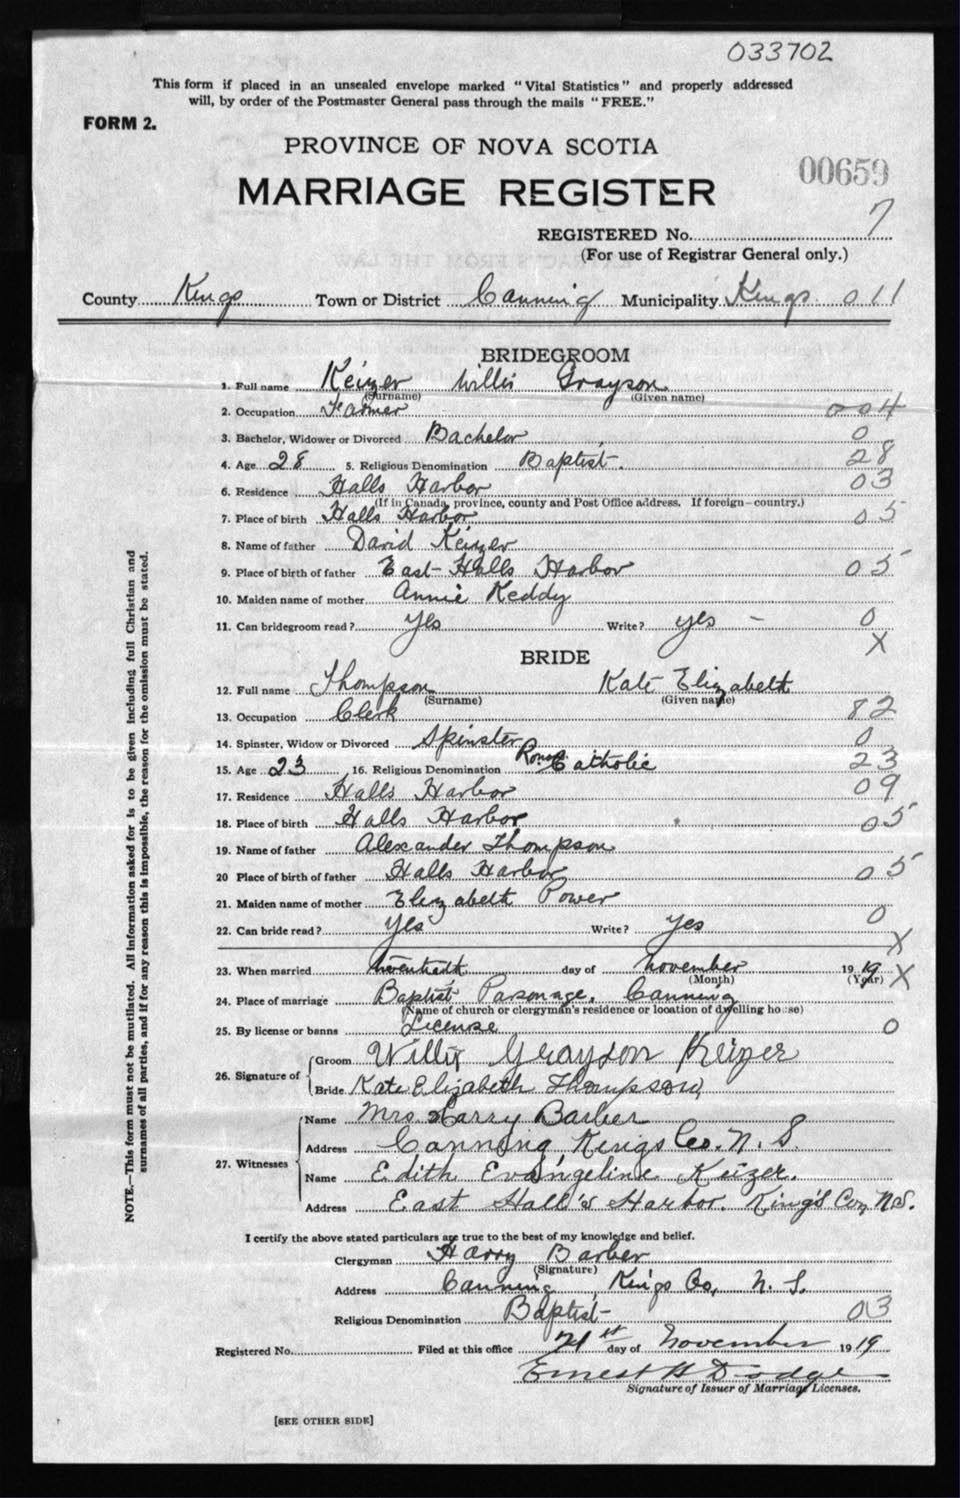 033702
This form if placed in an unsealed envelope marked "Vital Statistics" and properly addressed
will, by order of the Postmaster General pass through the mails "FREE."
FORM 2.
PROVINCE OF NOVA SCOTIA
00659
MARRIAGE REGISTER
REGISTERED No. 7
(For use of Registrar General only.)
County Kings Town or District Canning Municipality Kings 011
BRIDEGROOM
1. Full name Keizer Willis Grayson
(Surname) (Given name)
2. Occupation Farmer 004
3. Bachelor, Widower or Divorced Bachelor 0
4. Age 28 5. Religious Denomination Baptist. 28
6. Residence Halls Harbor 03
(If in Canada, province, county and Post Office address. If foreign—country.)
7. Place of birth Halls Harbor 05
8. Name of father David Keizer
9. Place of birth of father East Halls Harbor 05
10. Maiden name of mother Annie Keddy
11. Can bridegroom read? Yes Write? yes - 0
X
BRIDE
12. Full name Thompson Kate Elizabeth
(Surname) (Given name)
13. Occupation Clerk 82
14. Spinster, Widow or Divorced Spinster 0
15. Age 23 16. Religious Denomination Roman Catholic 23
17. Residence Halls Harbor 09
18. Place of birth Halls Harbor 05
19. Name of father Alexander Thompson
20 Place of birth of father Halls Harbor 05
21. Maiden name of mother Elizabeth Power
22. Can bride read? Yes Write? Yes 0
X
23. When married twentieth day of November 1919 X
(Month) (Year)
24. Place of marriage Baptist Parsonage, Canning
(Name of church or clergyman's residence or location of dwelling house)
25. By license or banns License 0
26. Signature of Groom Willis Grayson Keizer
Bride Kate Elizabeth Thompson
27. Witnesses Name Mrs Harry Barber
Address Canning, Kings Co. N. S.
Name Edith Evangeline Keizer.
Address East Hall's Harbor. King's Co, N.S.
I certify the above stated particulars are true to the best of my knowledge and belief.
Clergyman Harry Barber
(Signature)
Address Canning, Kings Co, N. S.
Religious Denomination Baptist 03
Registered No. Filed at this office 21st day of November 1919
Ernest H Dodge
Signature of Issuer of Marriage Licenses.
[SEE OTHER SIDE]
NOTE.—This form must not be mutilated. All information asked for is to be given including full Christian and
surnames of all parties, and if for any reason this is impossible, the reason for the omission must be stated.